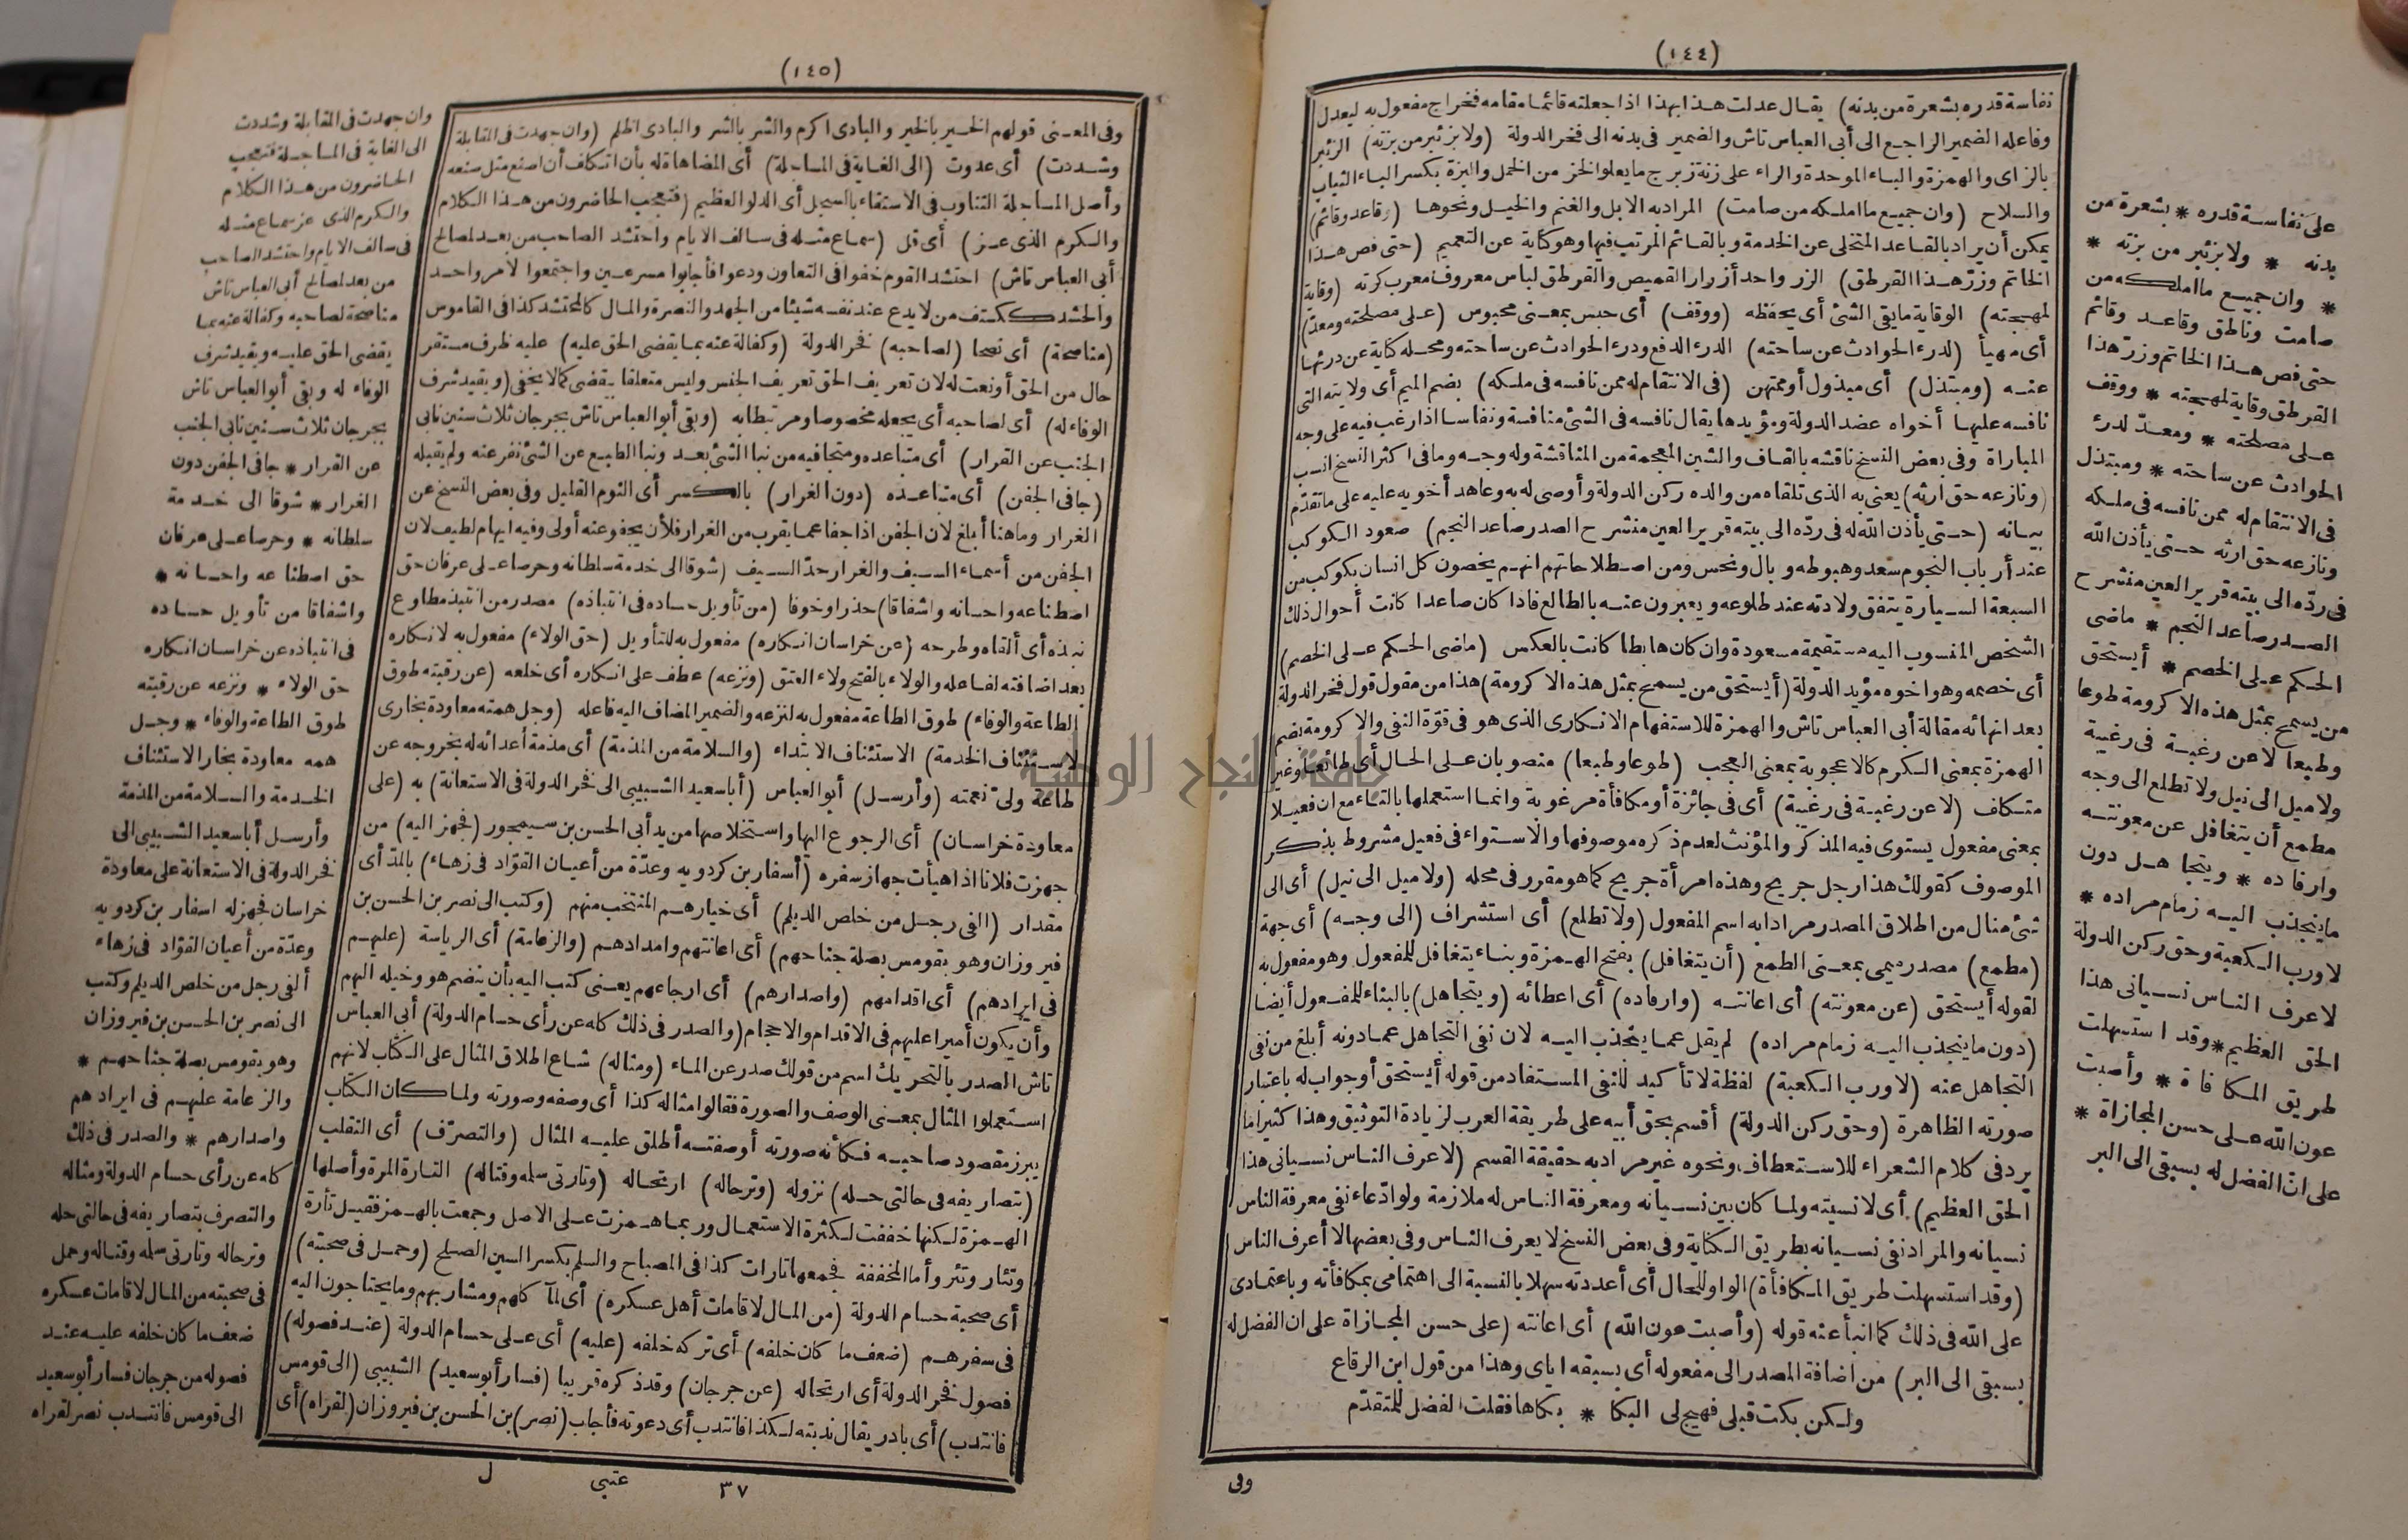 (١٤٤)
نفاسة قدره بشعرة من بدنه) يقال عدلت هذا بهذا اذا جعلته قائما مقامه فخراج مفعول به ليعدل
وفاعله الضمير الراجع الى أبى العباس تاش والضمير فى بدنه الى فخر الدولة (ولا بزئبر من بزته) الزئبر
بالزاى والهمزة والباء الموحدة والراء على زنة زبرج ما يعلو الخز من الخمل والبزة بكسر الباء الثياب
والسلاح (وان جميع ما املكه من صامت) المراد به الابل والغنم والخيل ونحوها (وقاعد وقائم)
يمكن أن يراد بالقاعد المتخلى عن الخدمة وبالقائم المرتب فيها وهو كناية عن التعميم (حتى فص هذا
الخاتم وزرّ هذا القرطق) الزر واحد أزرار القميص والقرطق لباس معروف معرب كرته (وقاية
لمهجته) الوقاية ما يقى الشئ أى يحفظه (ووقف) أى حبس بمعنى محبوس (على مصلحته ومعدّ)
أى مهيأ (لدرء الحوادث عن ساحته) الدرء الدفع ودرء الحوادث عن ساحته ومحله كناية عن درئها
عنه (ومبتذل) أى مبذول أو ممتهن (فى الانتقام له ممن نافسه فى ملكه) بضم الميم أى ولايته التى
نافسه عليها أخواه عضد الدولة ومؤيدها يقال نافسه فى الشئ منافسة ونفاسا اذا رغب فيه على وجه
المباراة وفى بعض النسخ ناقشه بالقاف والشين المعجمة من المناقشة وله وجه وما فى اكثر النسخ انسب
(ونازعه حق ارثه) يعنى به الذى تلقاه من والده ركن الدولة وأوصى له به وعاهد أخويه عليه على ما تقدّم
بيانه (حتى يأذن الله له فى ردّه الى بيته قرير العين منشرح الصدر صاعد النجم) صعود الكوكب
عند أرباب النجوم سعد وهبوطه وبال ونحس ومن اصطلاحاتهم انهم يخصون كل انسان بكوكب من
السبعة السيارة يتفق ولادته عند طلوعه ويعبرون عنه بالطالع فاذا كان صاعدا كانت أحوال ذلك
الشخص المنسوب اليه مستقيمة مسعودة وان كان هابطا كانت بالعكس (ماضى الحكم على الخصم)
أى خصمه وهو اخوه مؤيد الدولة (أيستحق من يسمح بمثل هذه الاكرومة) هذا من مقول قول فخر الدولة
بعد انهائه مقالة أبى العباس تاش والهمزة للاستفهام الانكارى الذى هو فى قوّة النفى والاكرومة بضم
الهمزة بمعنى الكرم كالاعجوبة بمعنى العجب (طوعا وطبعا) منصوبان على الحال أى طائعا وغير
متكلف (لا عن رغبة فى رغيبة) أى فى جائزة أو مكافأة مرغوبة وانما استعملها بالتاء مع ان فعيلا
بمعنى مفعول يستوى فيه المذكر والمؤنث لعدم ذكره موصوفها والاستواء فى فعيل مشروط بذكر
الموصوف كقولك هذا رجل جريح وهذه امرأة جريح كما هو مقرر فى محله (ولا ميل الى نيل) أى الى
شئ منال من اطلاق المصدر مرادا به اسم المفعول (ولا تطلع) أى استشراف (الى وجه) أى جهة
(مطمع) مصدر ميمى بمعنى الطمع (أن يتغافل) بفتح الهمزة وبناء يتغافل للمفعول وهو مفعول به
لقوله أيستحق (عن معونته) أى اعانته (وارفاده) أى اعطائه (ويتجاهل) بالبناء للمفعول أيضا
(دون ما ينجذب اليه زمام مراده) لم يقل عما ينجذب اليه لان نفى التجاهل عما دونه أبلغ من نفى
التجاهل عنه (لا ورب الكعبة) لفظة لا تأكيد للنفى المستفاد من قوله أيستحق أو جواب له باعتبار
صورته الظاهرة (وحق ركن الدولة) أقسم بحق أبيه على طريقة العرب لزيادة التوثيق وهذا كثيرا ما
يرد فى كلام الشعراء للاستعطاف ونحوه غير مراد به حقيقة القسم (لا عرف الناس نسيانى هذا
الحق العظيم) أى لا نسيته ولما كان بين نسيانه ومعرفة الناس له ملازمة ولو ادّعاء نفى معرفة الناس
نسيانه والمراد نفى نسيانه بطريق الكناية وفى بعض النسخ لا يعرف الناس وفى بعضها لا أعرف الناس
(وقد استسهلت طريق المكافأة) الواو للحال أى أعددته سهلا بالنسبة الى اهتمامى بمكافأته وباعتمادى
على الله فى ذلك كما انبأ عنه قوله (وأصبت عون الله) أى اعانته (على حسن المجازاة على ان الفضل له
بسبقى الى البر) من اضافة المصدر الى مفعوله أى بسبقه اياى وهذا من قول ابن الرقاع
ولكن بكت قبلى فهيج لى البكا * بكاها فقلت الفضل للمتقدّم
وفى
على نفاسة قدره * بشعرة من
بدنه * ولا بزئبر من بزته *
* وان جميع ما املكه من
صامت وناطق وقاعد وقائم
حتى فص هذا الخاتم وزرّ هذا
القرطق وقاية لمهجته * ووقف
على مصلحته * ومعدّ لدرء
الحوادث عن ساحته * ومبتذل
فى الانتقام له ممن نافسه فى ملكه
ونازعه حق ارثه حتى يأذن الله
فى ردّه الى بيته قرير العين منشرح
الصدر صاعد النجم * ماضى
الحكم على الخصم * أيستحق
من يسمح بمثل هذه الاكرومة طوعا
وطبعا لا عن رغبة فى رغيبة
ولا ميل الى نيل ولا تطلع الى وجه
مطمع أن يتغافل عن معونته
وارفاده * ويتجاهل دون
ما ينجذب اليه زمام مراده *
لا ورب الكعبة وحق ركن الدولة
لا عرف الناس نسيانى هذا
الحق العظيم * وقد استسهلت
طريق المكافاة * وأصبت
عون الله على حسن المجازاة *
على انّ الفضل له بسبقى الى البر
(١٤٥)
وفى المعنى قولهم الخير بالخير والبادى اكرم والشر بالشر والبادى اظلم (وان جهدت فى المقابلة
وشددت) أى عدوت (الى الغاية فى المساجلة) أى المضاهاة له بأن اتكلف أن اصنع مثل صنعه
وأصل المساجلة التناوب فى الاستقاء بالسجل أى الدلو العظيم (فتعجب الحاضرون من هذا الكلام
والكرم الذى عز) أى قل (سماع مثله فى سالف الايام واحتشد الصاحب من بعد لمصالح
أبى العباس تاش) احتشد القوم خفوا فى التعاون ودعوا فأجابوا مسرعين واجتمعوا لأمر واحد
والحشد ككتف من لا يدع عند نفسه شيئا من الجهد والنصرة والمال كالمحتشد كذا فى القاموس
(مناصحة) أى نصحا (لصاحبه) فخر الدولة (وكفالة عنه بما يقضى الحق عليه) عليه ظرف مستقر
حال من الحق أو نعت له لان تعريف الحق تعريف الجنس وليس متعلقا بيقضى كما لا يخفى (ويقيد شرف
الوفاء له) أى لصاحبه أى يجعله مخصوصا ومرتبطا به (وبقى أبو العباس تاش بجرجان ثلاث سنين نابى
الجنب عن القرار) أى متباعده ومتجافيه من نبا الشئ بعد ونبا الطبع عن الشئ نفر عنه ولم يقبله
(جافى الجفن) أى متباعده (دون الغرار) بالكسر أى النوم القليل وفى بعض النسخ عن
الغرار وما هنا أبلغ لان الجفن اذا جفا عما يقرب من الغرار فلأن يجفو عنه أولى وفيه ايهام لطيف لان
الجفن من أسماء السيف والغرار حدّ السيف (شوقا الى خدمة سلطانه وحرصا على عرفان حق
اصطناعه واحسانه واشفاقا) حذرا وخوفا (من تأويل حساده فى انتباذه) مصدر من انتبذ مطاوع
نبذه أى ألقاه وطرحه (عن خراسان انكاره) مفعول به للتأويل (حق الولاء) مفعول به لانكاره
بعد اضافته لفاعله والولاء بالفتح ولاء العتق (ونزعه) عطف على انكاره أى خلعه (عن رقبته طوق
الطاعة والوفاء) طوق الطاعة مفعول به لنزعه والضمير المضاف اليه فاعله (وجل همته معاودة بخارى
لاستئناف الخدمة) الاستئناف الابتداء (والسلامة من المذمة) أى مذمة أعدائه له بخروجه عن
طاعة ولىّ نعمته (وأرسل) أبو العباس (أبا سعيد الشبيبى الى فخر الدولة فى الاستعانة) به (على
معاودة خراسان) أى الرجوع اليها واستخلاصها من يد أبى الحسن بن سيمجور (فجهز اليه) من
جهزت فلانا اذا هيأت جهاز سفره (أسفار بن كردويه وعدّة من أعيان القوّاد فى زهاء) بالمدّ أى
مقدار (الفى رجل من خلص الديلم) أى خيارهم المنتخب منهم (وكتب الى نصر بن الحسن بن
فيروزان وهو بقومس بصلة جناحهم) أى اعانتهم وامدادهم (والزعامة) أى الرياسة (عليهم
فى ايرادهم) أى اقدامهم (واصدارهم) أى ارجاعهم يعنى كتب اليه بأن ينضم هو وخيله اليهم
وأن يكون أميرا عليهم فى الاقدام والاحجام (والصدر فى ذلك كله عن رأى حسام الدولة) أبى العباس
تاش الصدر بالتحريك اسم من قولك صدر عن الماء (ومثاله) شاع اطلاق المثال على الكتاب لانهم
استعملوا المثال بمعنى الوصف والصورة فقالوا مثاله كذا أى وصفه وصورته ولما كان الكتاب
يبرز مقصود صاحبه فكأنه صورته أو صفته أطلق عليه المثال (والتصرّف) أى التقلب
(بتصاريفه فى حالتى حله) نزوله (وترحاله) ارتحاله (وتارتى سلمه وقتاله) التارة المرة وأصلها
الهمزة لكنها خففت لكثرة الاستعمال وربما همزت على الاصل وجمعت بالهمز فقيل تأرة
وتئار وتئر وأما المخففة فجمعها تارات كذا فى المصباح والسلم بكسر السين الصلح (وحمل فى صحبته)
أى صحبة حسام الدولة (من المال لاقامات أهل عسكره) أى لمآكلهم ومشاربهم وما يحتاجون اليه
فى سفرهم (ضعف ما كان خلفه) أى تركه خلفه (عليه) أى على حسام الدولة (عند فصوله)
فصول فخر الدولة أى ارتحاله (عن جرجان) وقد ذكره قريبا (فسار أبو سعيد) الشبيبى (الى قومس
فانتدب) أى بادر يقال ندبته لكذا فانتدب أى دعوته فأجاب (نصر) بن الحسن بن فيروزان (لقراه) أى
٣٧ عتبي ل
وان جهدت فى المقابلة وشددت
الى الغاية فى المساجلة فتعجب
الحاضرون من هذا الكلام
والكرم الذى عز سماع مثله
فى سالف الايام واحتشد الصاحب
من بعد لمصالح أبى العباس تاش
مناصحة لصاحبه وكفالة عنه بما
يقضى الحق عليه ويقيد شرف
الوفاء له وبقى أبو العباس تاش
بجرجان ثلاث سنين نابى الجنب
عن القرار * جافى الجفن دون
الغرار * شوقا الى خدمة
سلطانه * وحرصا على عرفان
حق اصطناعه واحسانه *
واشفاقا من تأويل حساده
فى انتباذه عن خراسان انكاره
حق الولاء * ونزعه عن رقبته
طوق الطاعة والوفاء * وجل
همه معاودة بخارا لاستئناف
الخدمة والسلامة من المذمة
وأرسل أبا سعيد الشبيبى الى
فخر الدولة فى الاستعانة على معاودة
خراسان فجهز له اسفار بن كردويه
وعدّة من أعيان القوّاد فى زهاء
ألفى رجل من خلص الديلم وكتب
الى نصر بن الحسن بن فيروزان
وهو بقومس بصلة جناحهم *
والزعامة عليهم فى ايرادهم
واصدارهم * والصدر فى ذلك
كله عن رأى حسام الدولة ومثاله
والتصرف بتصاريفه فى حالتى حله
وترحاله وتارتى سلمه وقتاله وحمل
فى صحبته من المال لاقامات عسكره
ضعف ما كان خلفه عليه عند
فصوله من جرجان فسار أبو سعيد
الى قومس فانتدب نصر لقراه
جامعة النجاح الوطنية